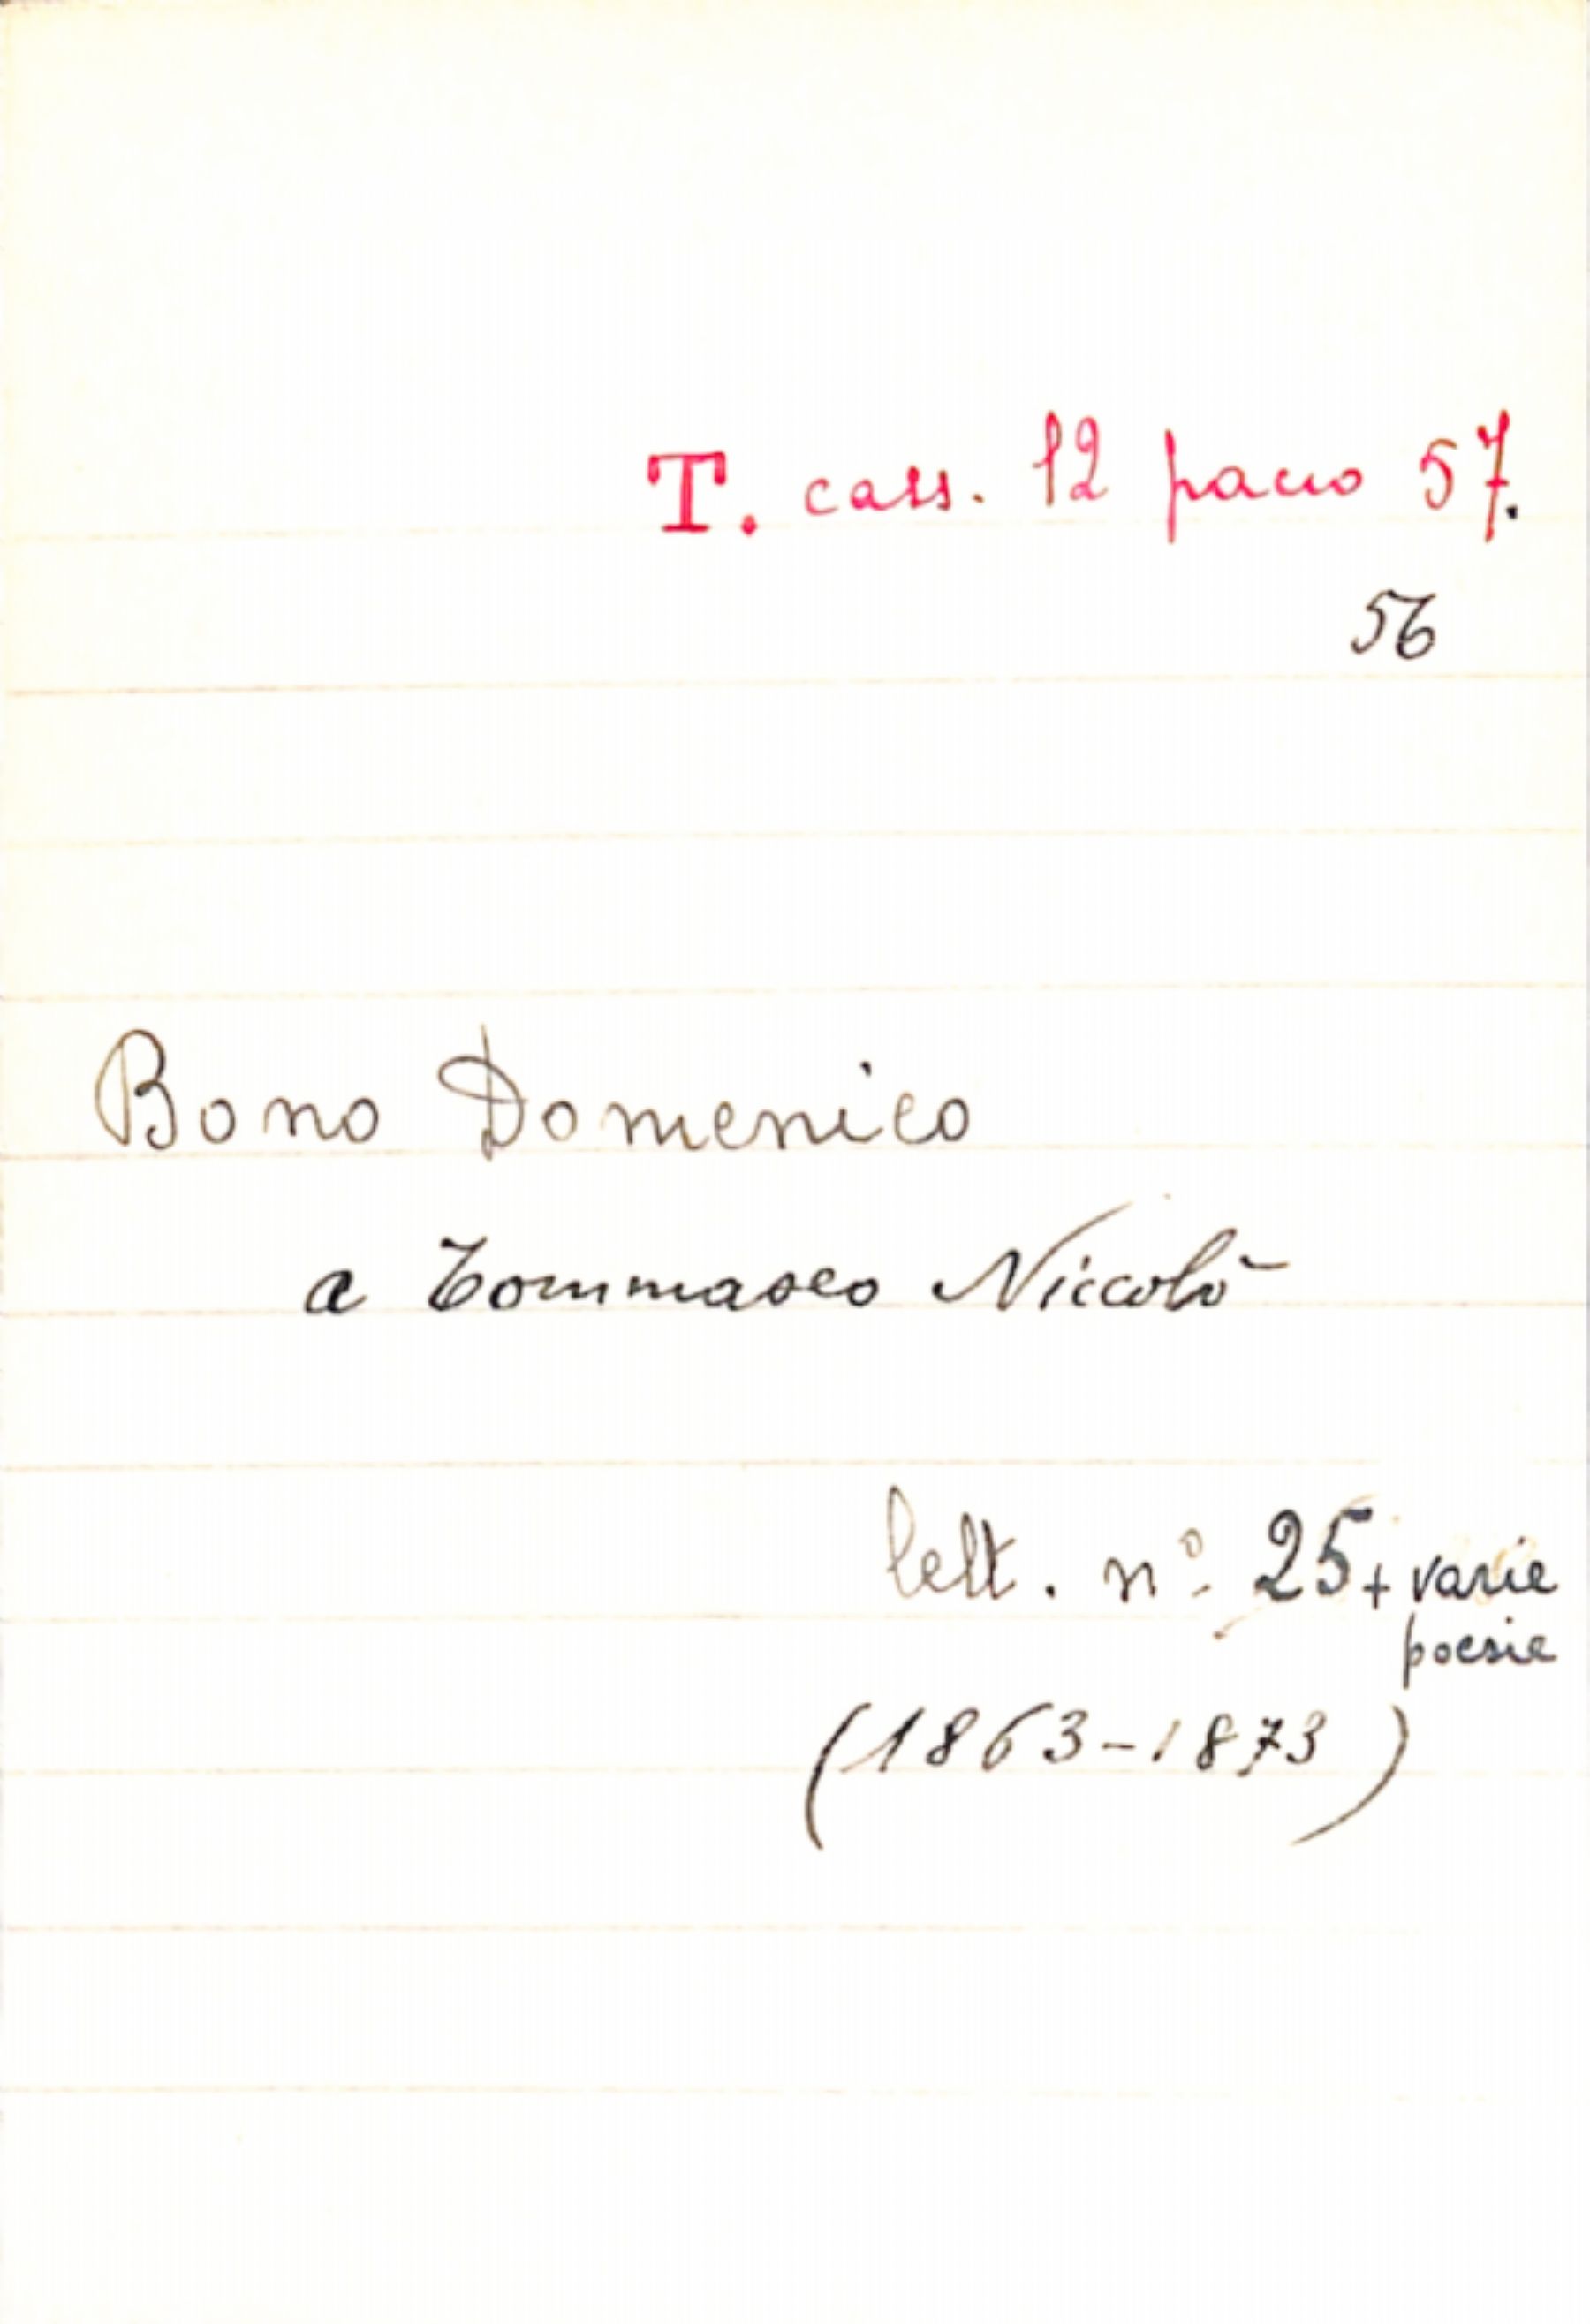 T. cass. 12 pacco 57.
56
Bono Domenico
a Tommaseo Niccolò
lett. nº 25 + varie
poesie
(1863-1873)